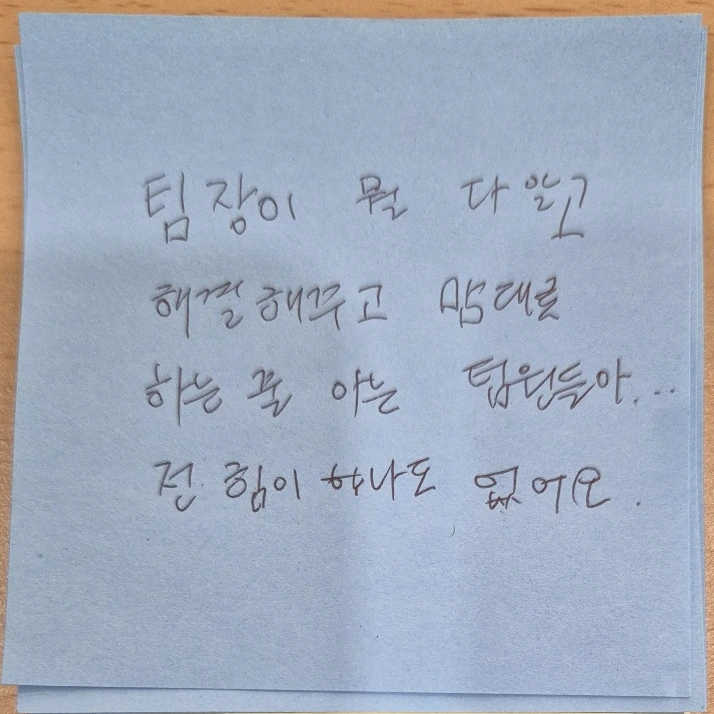 팀장이 뭘 다 알고
해결해주고 맘대로
하는 줄 아는 팀원들아...
전 힘이 하나도 없어요.